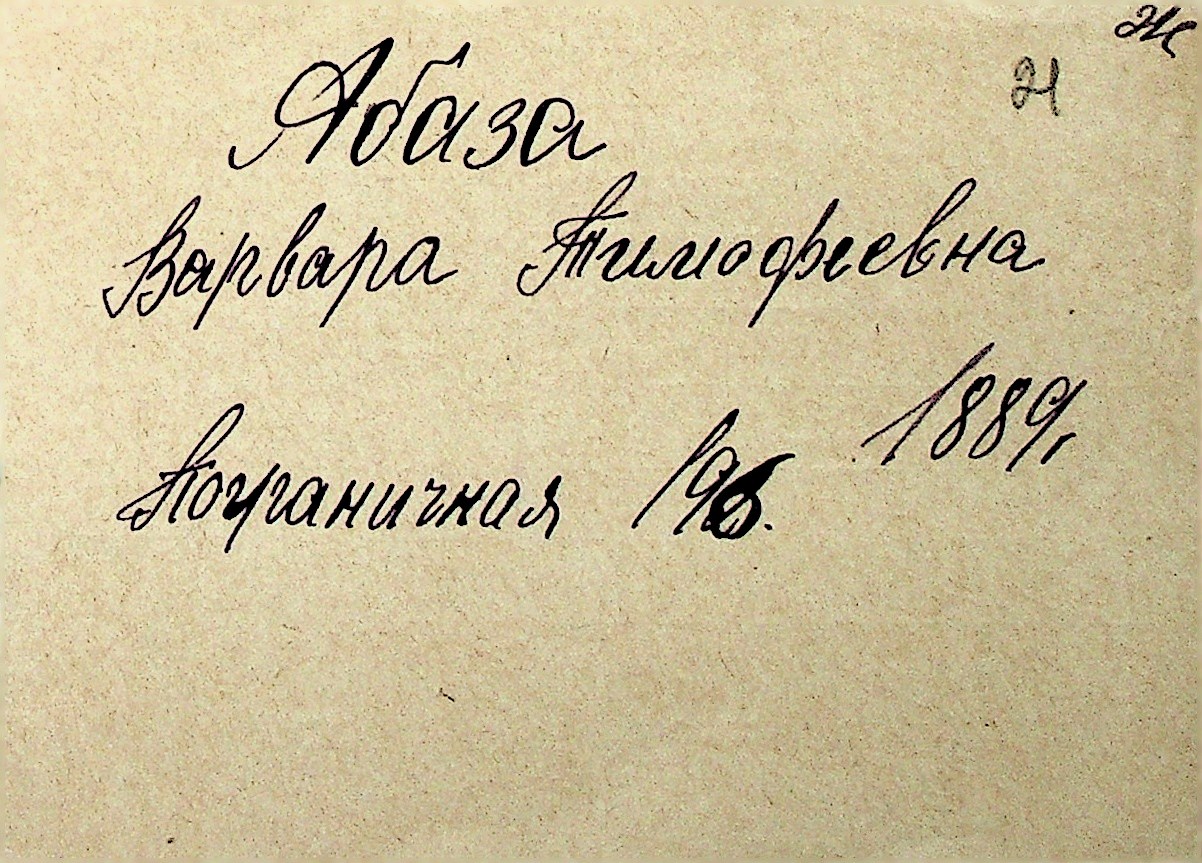 Ж
21
Абаза
Варвара Тимофеевна
1889г
Пограничная 19б.